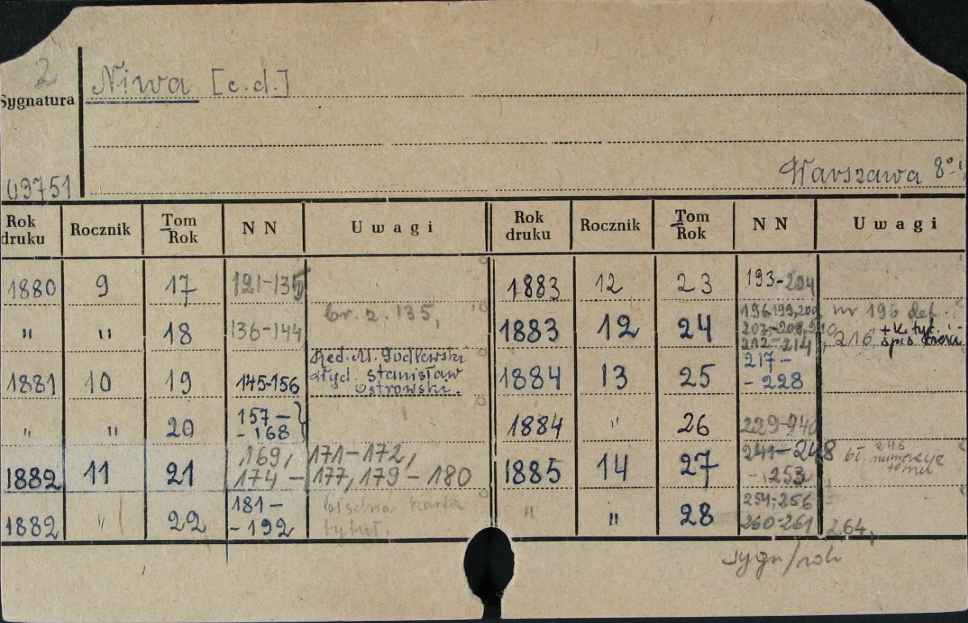 2 Niwa [c.d.]
Sygnatura
Warszawa 8°
03751
Rok druku Rocznik Tom Rok NN Uwagi Rok druku Rocznik Tom Rok NN Uwagi
1880 9 17 121-135 1883 12 23 193-204
br. z. 135,
" " 18 136-144 1883 12 24 196,199,200 nr 196 def.
202,-208,210
212-214, 216 + k. tyt. i
spis treści
1881 10 19 145-156 Red. M. Godlewski
Wyd. Stanisław
Ostrowski.
1884 13 25 217-
-228
" " 20 157-
-168
1884 " 26 229-240
1882 11 21 169, 171-172,
174 - 177, 179-180
1885 14 27 241-248
-253 bł. 246 numeracja
tomu
1882 " 22 181-
-192 błędna karta
tytuł.
" " 28 254,-256
260-261 264,
sygn/rok